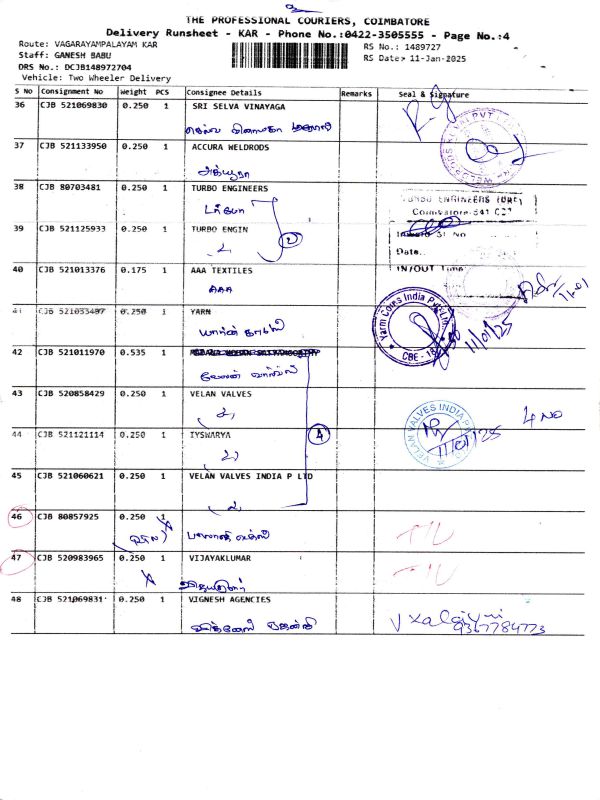 THE PROFESSIONAL COURIERS, COIMBATORE
Delivery Runsheet - KAR - Phone No.:0422-3505555 - Page No.:4
Route: VAGARAYAMPALAYAM KAR
RS No.: 1489727
Staff: GANESH BABU
RS Date: 11-Jan-2025
DRS No.: DCJB148972704
Vehicle: Two Wheeler Delivery
S No Consignment No Weight PCS Consignee Details Remarks Seal & Signature
36 CJB 521069830 0.250 1 SRI SELVA VINAYAGA
செல்வ விநாயகா
37 CJB 521133950 0.250 1 ACCURA WELDRODS
அக்யூரா
38 CJB 80703481 0.250 1 TURBO ENGINEERS
TURBO ENGINEERS (CBE)
டர்போ
Coimbatore-641
39 CJB 521125933 0.250 1 TURBO ENGIN
2
Date
IN/OUT Time
40 CJB 521013376 0.175 1 AAA TEXTILES
AAA
41 CJB 521033487 0.250 1 YARN
Yarn Coins India Pvt Ltd
CBE - 18
11/01/25
42 CJB 521011970 0.535 1
வேலன் வால்வ்ஸ்
43 CJB 520858429 0.250 1 VELAN VALVES
VELAN VALVES INDIA P
4 NO
11/01/25
44 CJB 521121114 0.250 1 IYSWARYA
4
45 CJB 521060621 0.250 1 VELAN VALVES INDIA P LTD
46 CJB 80857925 0.250 1
47 CJB 520983965 0.250 1 VIJAYAKLUMAR
48 CJB 521069831 0.250 1 VIGNESH AGENCIES
விக்னேஸ் ஏஜென்சி
9367784773